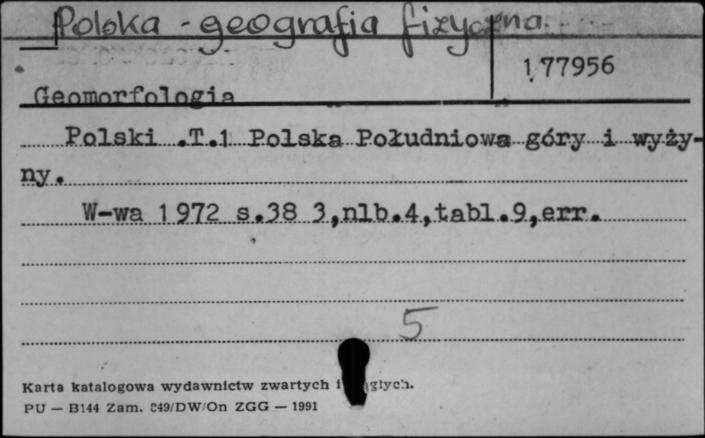 Polska - geografia fizyczna.
177956
Geomorfologia
Polski .T.1 Polska Południowa góry i wyży-
ny.
W-wa 1972 s.38 3,nlb.4,tabl.9,err.
5
Karta katalogowa wydawnictw zwartych i
PU — B144 Zam. 849/DW/On ZGG — 1991